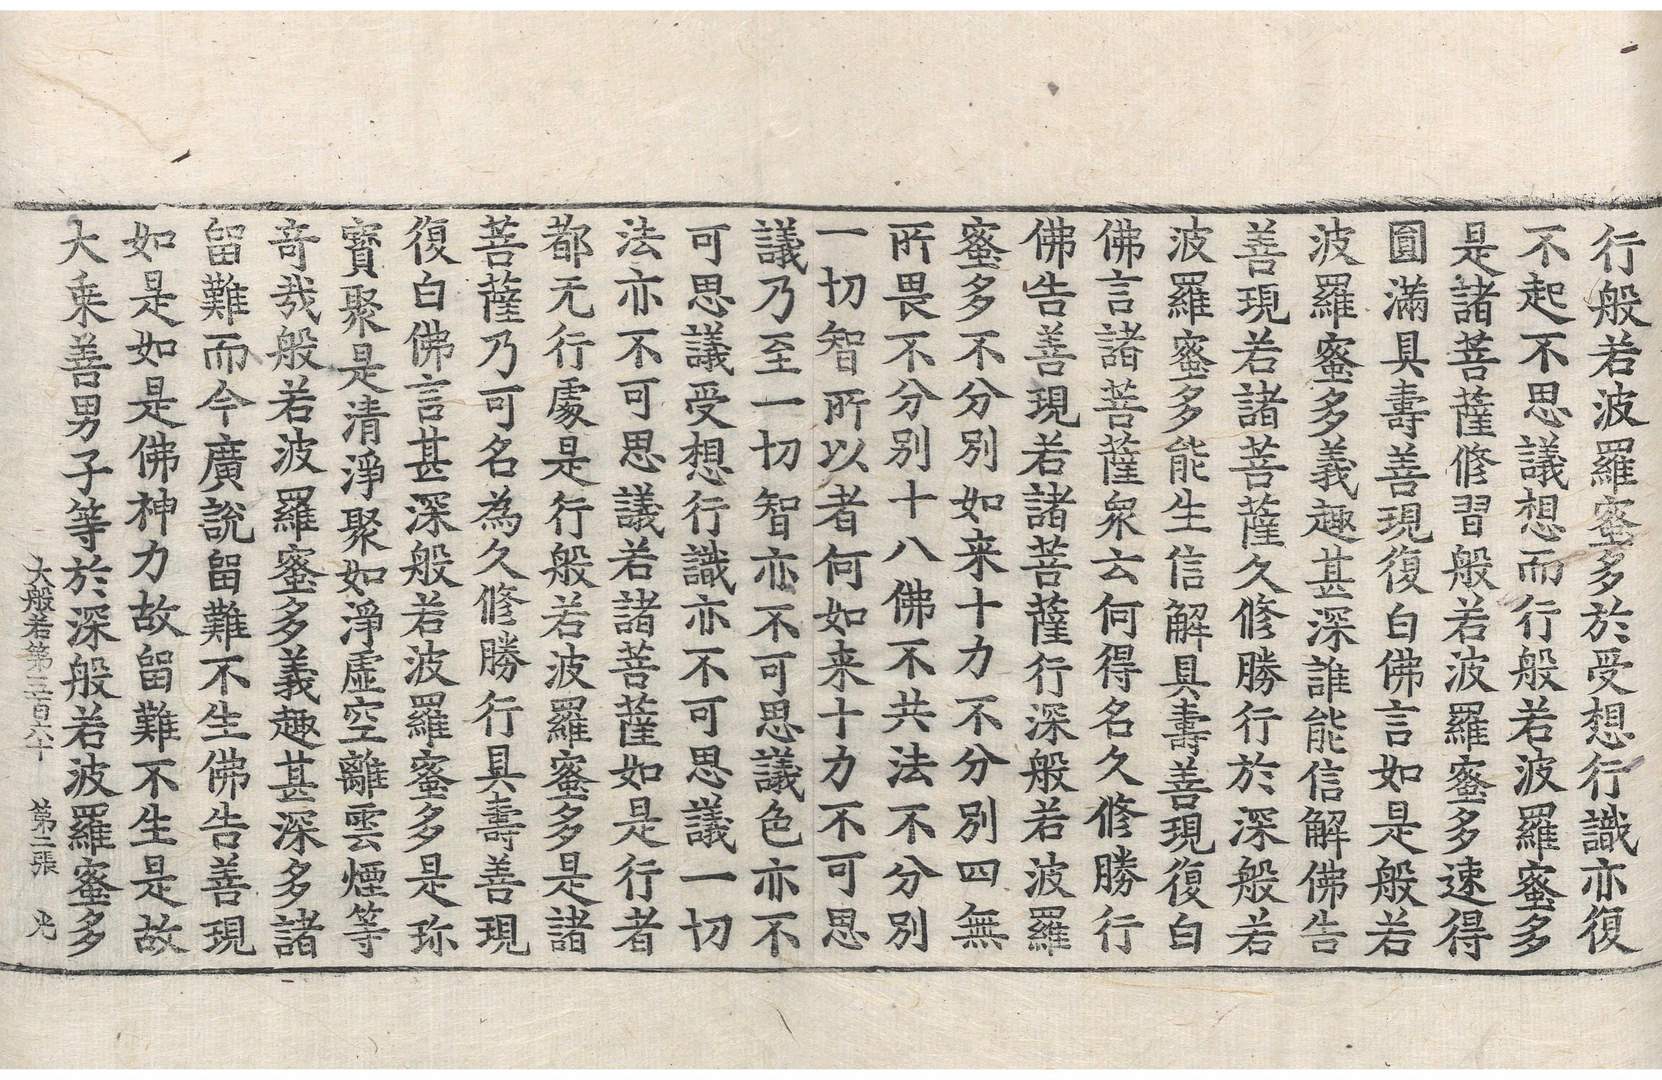 行般若波羅蜜多於受想行識亦復
不起不思議想而行般若波羅蜜多
是諸菩薩修習般若波羅蜜多速得
圓滿具壽善現復白佛言如是般若
波羅蜜多義趣甚深誰能信解佛告
善現若諸菩薩久修勝行於深般若
波羅蜜多能生信解具壽善現復白
佛言諸菩薩衆云何得名久修勝行
佛告善現若諸菩薩行深般若波羅
蜜多不分別如来十力不分別四無
所畏不分別十八佛不共法不分別
一切智所以者何如来十力不可思
議乃至一切智亦不可思議色亦不
可思議受想行識亦不可思議一切
法亦不可思議若諸菩薩如是行者
都无行處是行般若波羅蜜多是諸
菩薩乃可名為久修勝行具壽善現
復白佛言甚深般若波羅蜜多是珎
寶聚是清淨聚如淨虛空離雲煙等
奇哉般若波羅蜜多義趣甚深多諸
留難而今廣說留難不生佛告善現
如是如是佛神力故留難不生是故
大乗善男子等於深般若波羅蜜多
大般若第三百六十 第二張 光